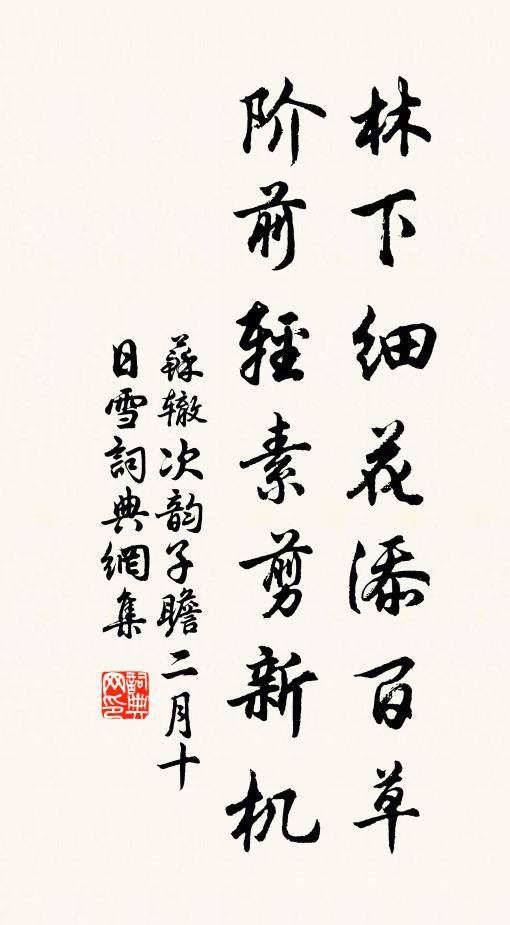 林下细花添百草
阶前輕素剪新机
蘇辙次韵子瞻二月十
日雪詞典網集
詞典网印